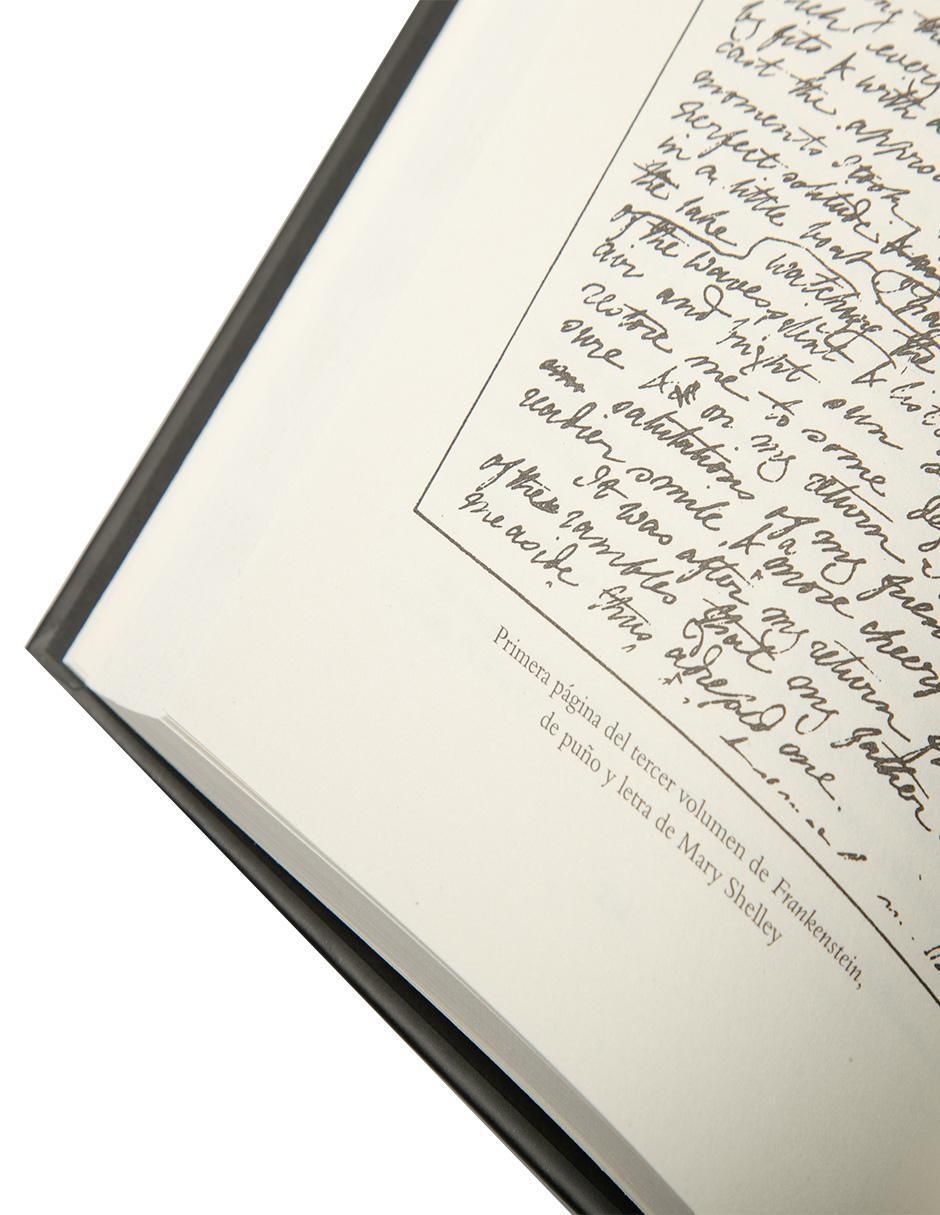 ng the
ch every
by fits & with a
cast the approa
moments I took
perfect solitude
in a little boat
the lake watching the
of the waves silent & list
air and bright sun
restore me to some deg
sure & on my return
salutations of my frien
readier smile & a more cheery
It was after my return fr
of these rambles that my father
me aside thus adressed me.
Primera página del tercer volumen de Frankenstein,
de puño y letra de Mary Shelley